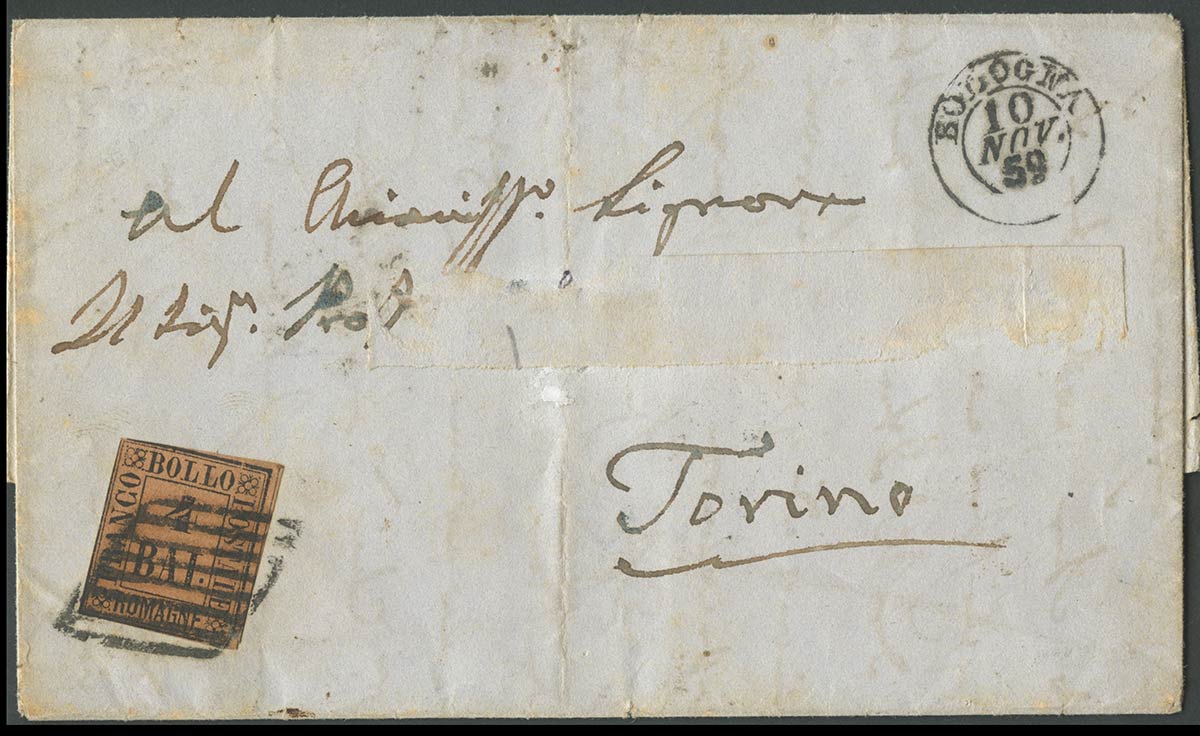 BOLOGNA
10
NOV.
59
Al Chiariss.º Signore
Il Sig.r Prof
Torino
FRANCO BOLLO POSTALE ROMAGNE
BAI.